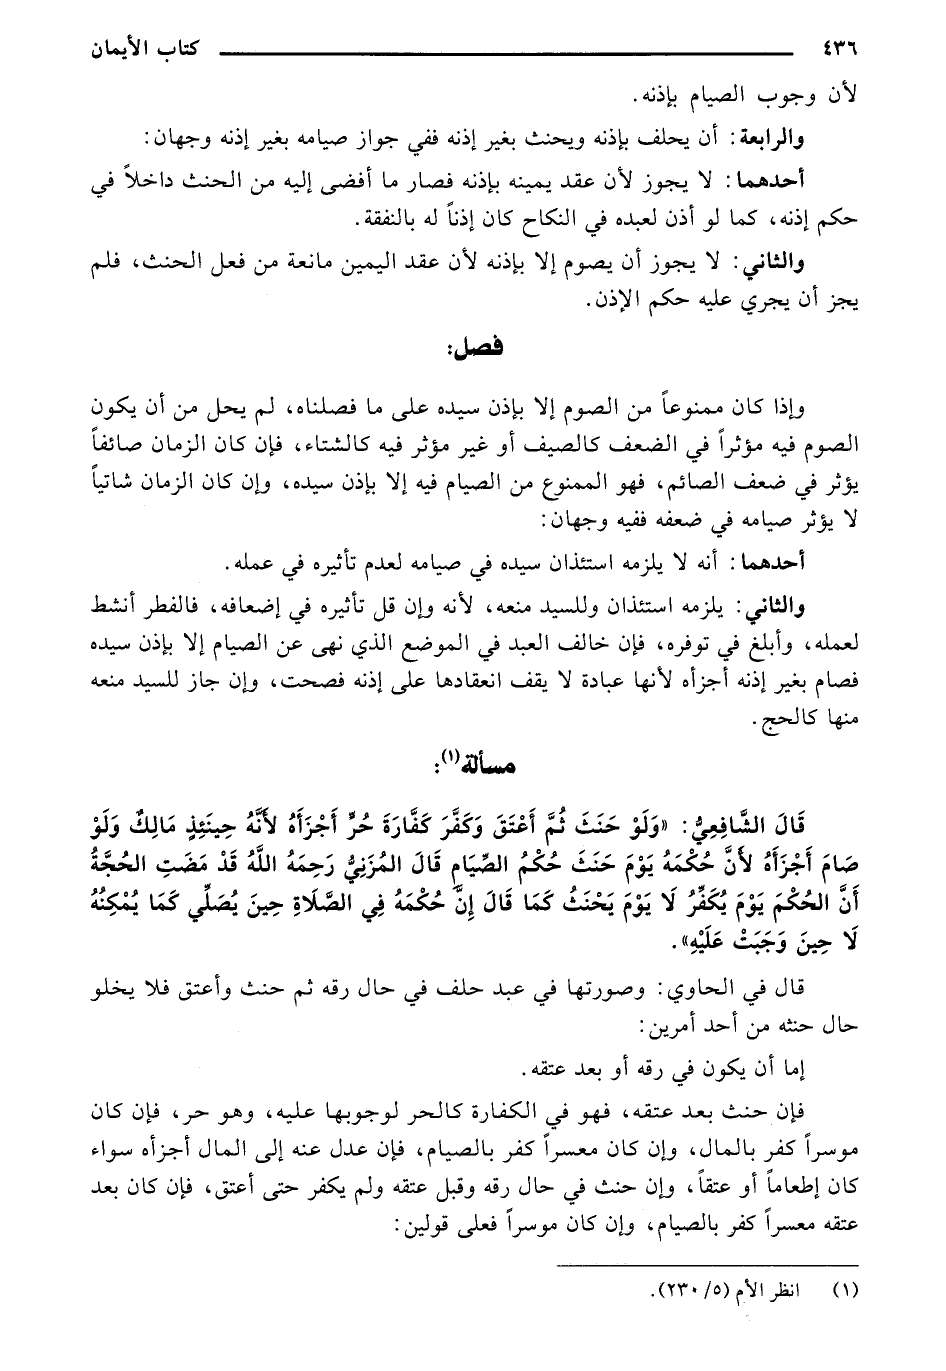 ٤٣٦ كتاب الأيمان
لأن وجوب الصيام بإذنه.
والرابعة: أن يحلف بإذنه ويحنث بغير إذنه ففي جواز صيامه بغير إذنه وجهان:
أحدهما: لا يجوز لأن عقد يمينه بإذنه فصار ما أفضى إليه من الحنث داخلاً في
حكم إذنه، كما لو أذن لعبده في النكاح كان إذناً له بالنفقة.
والثاني: لا يجوز أن يصوم إلا بإذنه لأن عقد اليمين مانعة من فعل الحنث، فلم
يجز أن يجري عليه حكم الإذن.
فصل:
وإذا كان ممنوعاً من الصوم إلا بإذن سيده على ما فصلناه، لم يحل من أن يكون
الصوم فيه مؤثراً في الضعف كالصيف أو غير مؤثر فيه كالشتاء، فإن كان الزمان صائفاً
يؤثر في ضعف الصائم، فهو الممنوع من الصيام فيه إلا بإذن سيده، وإن كان الزمان شاتياً
لا يؤثر صيامه في ضعفه ففيه وجهان:
أحدهما: أنه لا يلزمه استئذان سيده في صيامه لعدم تأثيره في عمله.
والثاني: يلزمه استئذان وللسيد منعه، لأنه وإن قل تأثيره في إضعافه، فالفطر أنشط
لعمله، وأبلغ في توفره، فإن خالف العبد في الموضع الذي نهى عن الصيام إلا بإذن سيده
فصام بغير إذنه أجزأه لأنها عبادة لا يقف انعقادها على إذنه فصحت، وإن جاز للسيد منعه
منها كالحج.
مسألة(١):
قَالَ الشَّافِعِيُّ: «وَلَوْ حَنَثَ ثُمَّ أَعْتَقَ وَكَفَّرَ كَفَّارَةَ حُرٍّ أَجْزَأَهُ لأَنَّهُ حِينَئِذٍ مَالِكٌ وَلَوْ
صَامَ أَجْزَأَهُ لأَنَّ حُكْمَهُ يَوْمَ حَنَثَ حُكْمُ الصِّيَامِ قَالَ المُزَنِيُّ رَحِمَهُ اللَّهُ قَدْ مَضَتِ الحُجَّةُ
أَنَّ الحُكْمَ يَوْمَ يُكَفِّرُ لَا يَوْمَ يَحْنَثُ كَمَا قَالَ إِنَّ حُكْمَهُ فِي الصَّلَاةِ حِينَ يُصَلِّي كَمَا يُمْكِنُهُ
لَا حِينَ وَجَبَتْ عَلَيْهِ».
قال في الحاوي: وصورتها في عبد حلف في حال رقه ثم حنث وأعتق فلا يخلو
حال حنثه من أحد أمرين:
إما أن يكون في رقه أو بعد عتقه.
فإن حنث بعد عتقه، فهو في الكفارة كالحر لوجوبها عليه، وهو حر، فإن كان
موسراً كفر بالمال، وإن كان معسراً كفر بالصيام، فإن عدل عنه إلى المال أجزأه سواء
كان إطعاماً أو عتقاً، وإن حنث في حال رقه وقبل عتقه ولم يكفر حتى أعتق، فإن كان بعد
عتقه معسراً كفر بالصيام، وإن كان موسراً فعلى قولين:
(١) انظر الأم (٥/ ٢٣٠).